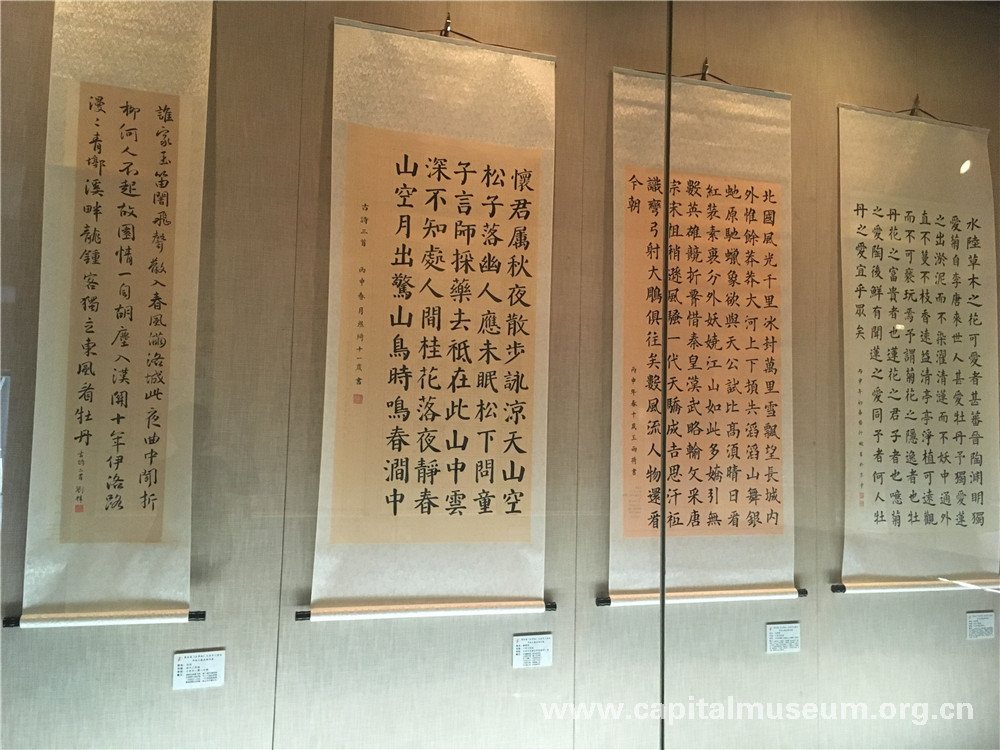 誰家玉笛闇飛聲散入春風滿洛城此夜曲中聞折
柳何人不起故園情一自胡塵入漢關十年伊洛路
漫〻青墩溪畔龍鍾客獨立東風看牡丹
懷君属秋夜散步詠涼天山空
松子落幽人應未眠松下問童
子言師採藥去祗在此山中雲
深不知處人間桂花落夜靜春
山空月出驚山鳥時鳴春澗中
古詩三首 丙申春月 十一歲書
北國風光千里冰封萬里雪飄望長城内
外惟餘莽莽大河上下頓失滔滔山舞銀
虵原馳蠟象欲與天公試比高須晴日看
紅裝素裹分外妖嬈江山如此多嬌引無
數英雄競折腰惜秦皇漢武略輸文采唐
宗宋祖稍遜風騷一代天驕成吉思汗衹
識彎弓射大鵰俱往矣數風流人物還看
今朝
丙申年春十歲王 書
水陸草木之花可愛者甚蕃晉陶淵明獨
愛菊自李唐來世人甚愛牡丹予獨愛蓮
之出淤泥而不染濯清漣而不妖中通外
直不蔓不枝香遠益清亭亭淨植可遠觀
而不可褻玩焉予謂菊花之隱逸者也牡
丹花之富貴者也蓮花之君子者也噫菊
之愛陶後鮮有聞蓮之愛同予者何人牡
丹之愛宜乎眾矣
www.capitalmuseum.org.cn